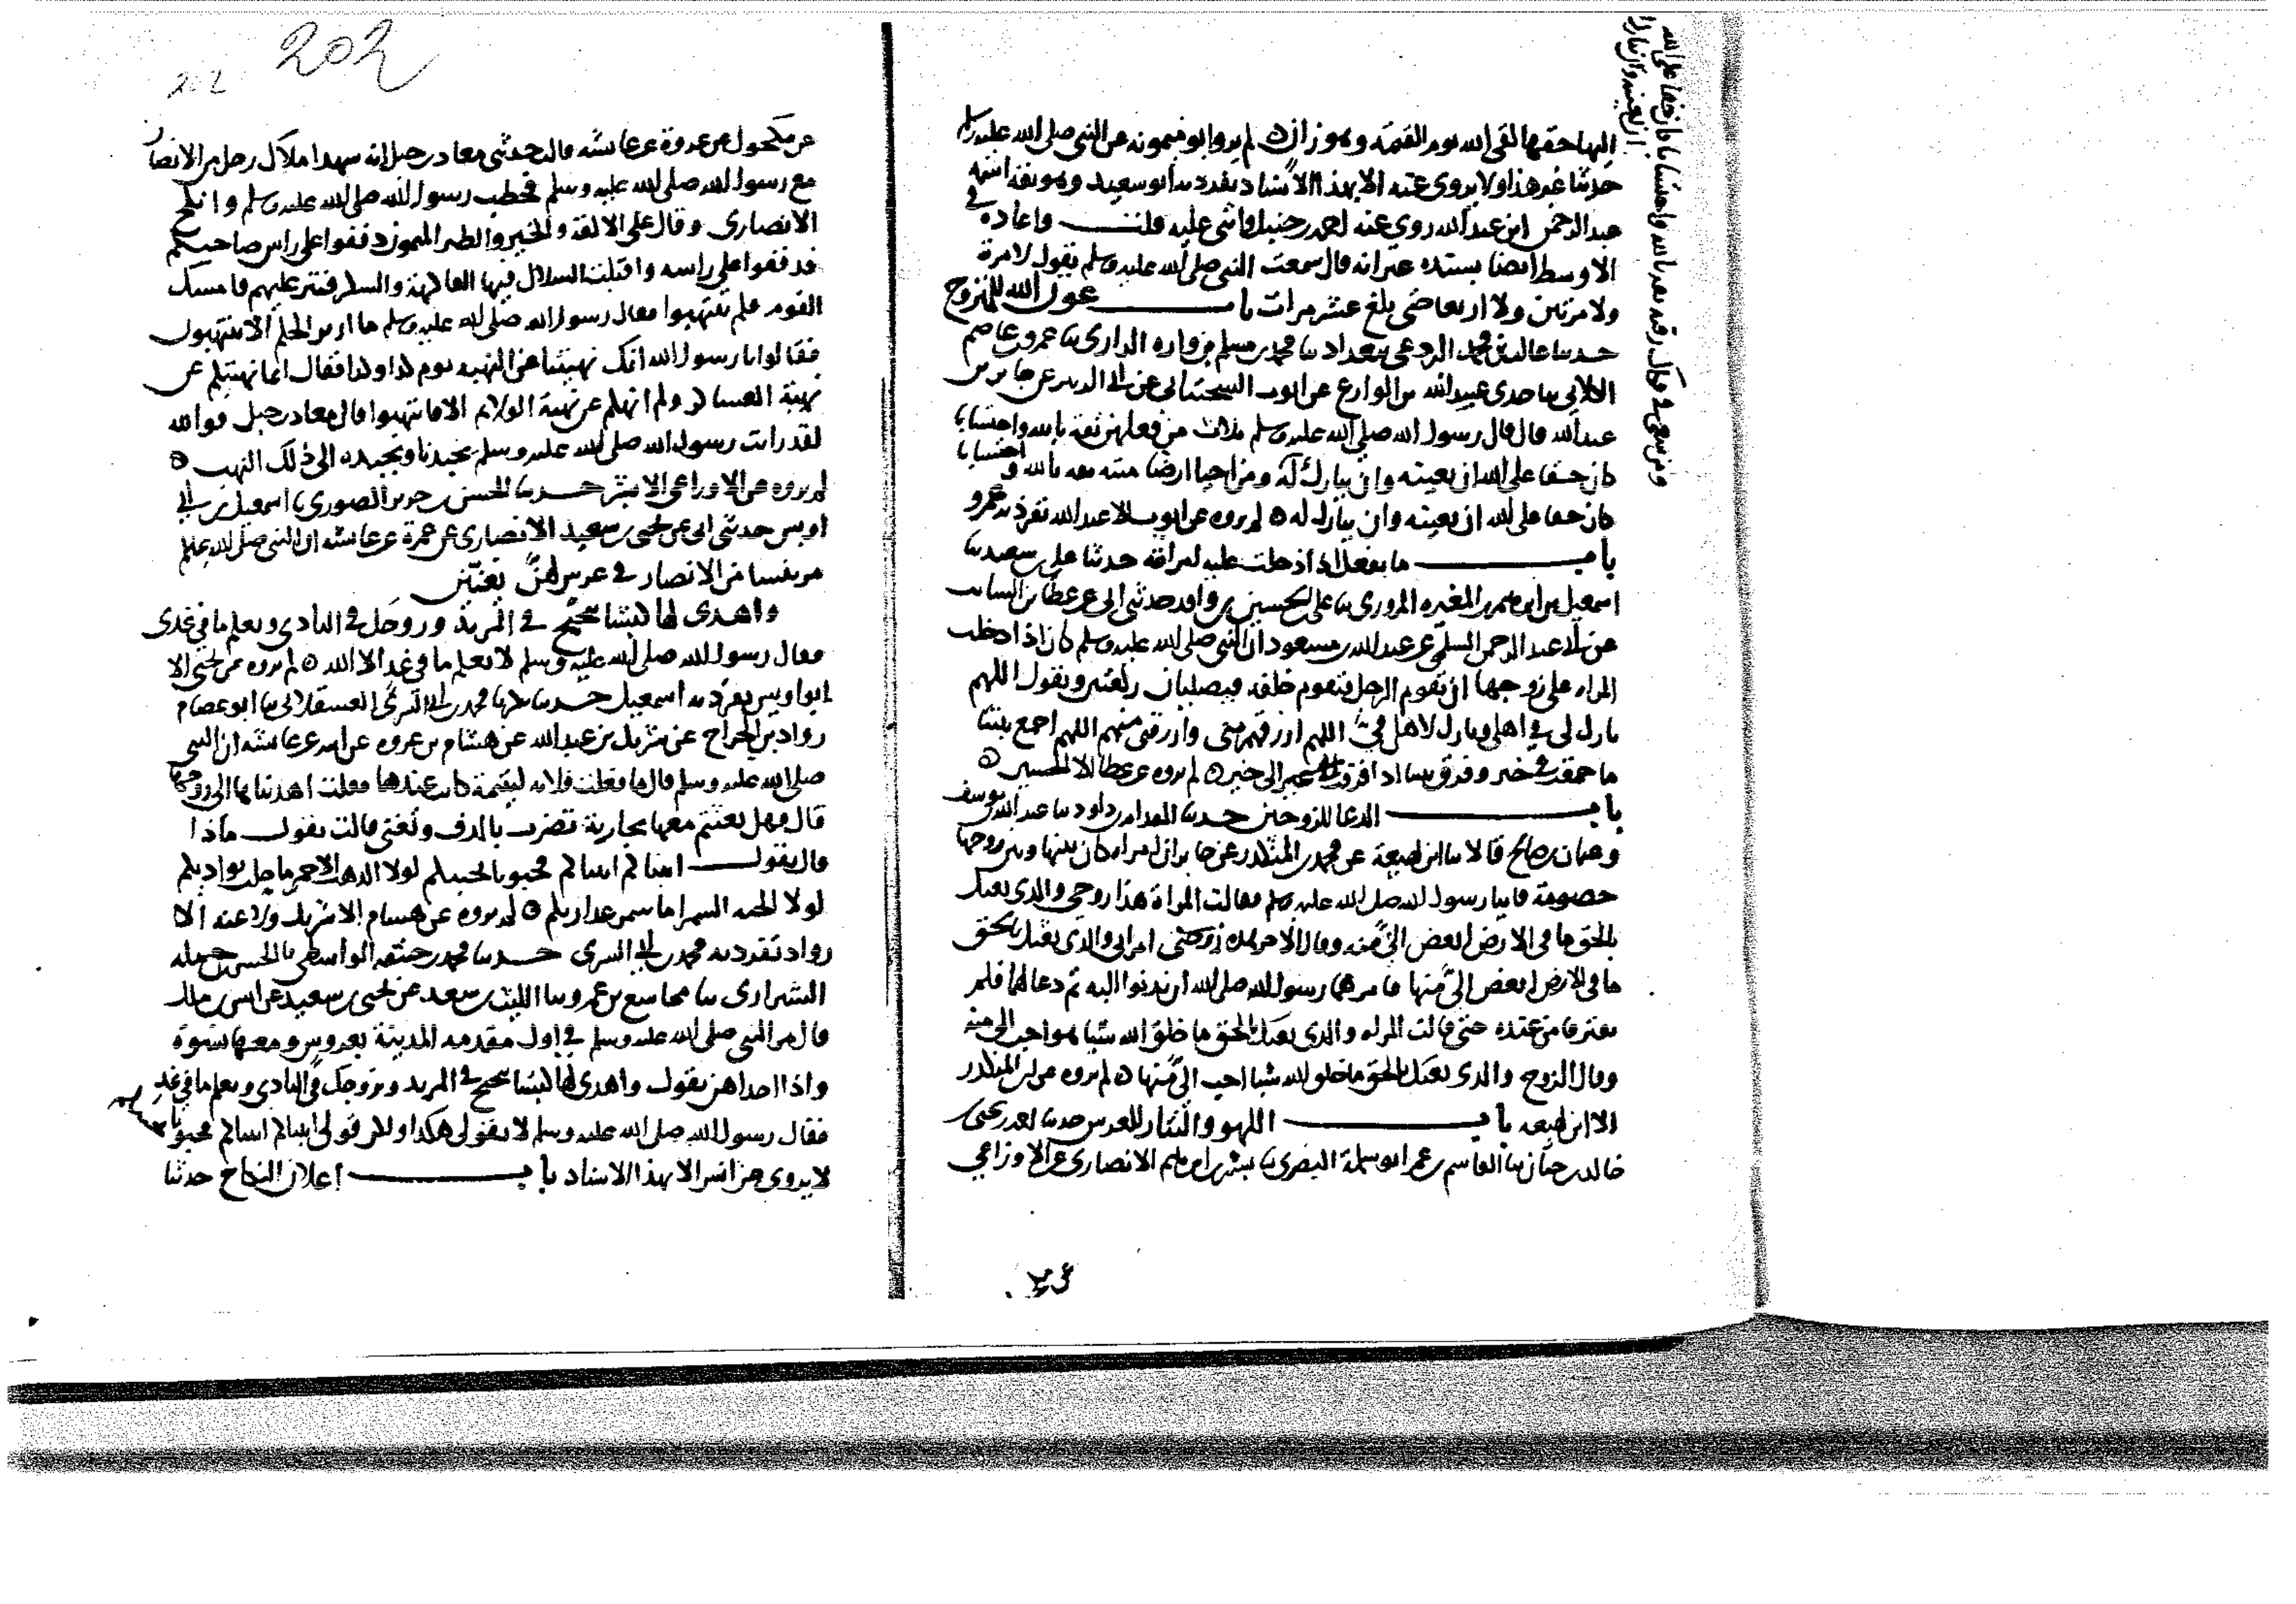 اليها حقها لقى الله يوم القيمة وهو زان لم يرو ابو ميمونه عن النبى صلى الله عليه وسلم
حدثنا غير هذا ولا يروى عنه الا بهذا الاسناد تفرد به ابو سعيد وهو ثقة
عبد الرحمن ابن عبد الله روى عنه احمد بن حنبل واثنى عليه قلت واعاده فى
الاوسط ايضا بسنده غير انه قال سمعت النبى صلى الله عليه وسلم يقول لا مرة
ولا مرتين ولا اربعا حتى بلغ عشر مرات باب عون الله للمتزوج
حدثنا محمد ببغداد ثنا محمد بن مسلم بن واره الرازى ثنا عمرو بن عاصم
الكلابى ثنا جدى عبيد الله بن الوازع عن ايوب السختيانى عن ابى الزبير عن جابر بن
عبد الله قال قال رسول الله صلى الله عليه وسلم ثلاث من فعلهن ثقة بالله واحتسابا
كان حقا على الله ان يعينه وان يبارك له ومن احيا ارضا ميتة ثقة بالله واحتسابا
كان حقا على الله ان يعينه وان يبارك له لم يروه عن ايوب الا عبيد الله تفرد به عمرو
باب ما يفعل اذا دخلت عليه امراته حدثنا على بن سعيد ثنا
اسمعيل بن ابراهيم بن المغيره المروزى ثنا على بن الحسين بن واقد حدثنى ابى عن عطا بن السائب
عن ابى عبد الرحمن السلمى عن عبد الله بن مسعود ان النبى صلى الله عليه وسلم كان اذا دخلت
المراه على زوجها ان يقوم الرجل فتقوم خلفه فيصليان ركعتين ويقول اللهم
بارك لى فى اهلى وبارك لاهلى فى اللهم ارزقهم منى وارزقنى منهم اللهم اجمع بيننا
ما جمعت فى خير وفرق بيننا اذا فرقت الى خير لم يروه عن عطا الا الحسين
باب الدعا للزوجين حدثنا المقدام بن داود ثنا عبد الله بن يوسف
وعثمان بن صالح قالا ثنا ابن لهيعة عن محمد بن المنكدر عن جابر ان امراه كان بينها وبين زوجها
خصومة فاتيا رسول الله صلى الله عليه وسلم فقالت المراة هذا زوجى والذى بعثك
بالحق ما فى الارض ابغض الى منه وقال الاخر هذه زوجتى امراتى والذى بعثك بالحق
ما فى الارض ابغض الى منها فامرهما رسول الله صلى الله ان يدنوا اليه ثم دعا لهما فلم
يفترقا من عنده حتى قالت المراه والذى بعثك بالحق ما خلق الله شيا هو احب الى منه
وقال الزوج والذى بعثك بالحق ما خلق الله شيا احب الى منها لم يروه عن ابن المنكدر
الا ابن لهيعه باب اللهو والنثار للعرس حدثنا احمد بن يحيى
خالد بن حيان ثنا القاسم بن عمر ابو سلمة البصرى ثنا بشر بن ابراهيم الانصارى عن الاوزاعى
202
202
عن مكحول عن عروة عن عائشه قالت حدثنى معاد بن جبل انه شهد املاك رجل من الانصار
مع رسول الله صلى الله عليه وسلم فخطب رسول الله صلى الله عليه وسلم وانكح
الانصارى وقال على الالفة والخير والطير الميمون دففوا على راس صاحبكم
فدففوا على راسه واقبلت السلال فيها الفاكهة والسكر فنثر عليهم فامسك
القوم فلم ينتهبوا فقال رسول الله صلى الله عليه وسلم ما ازين الحلم الا تنتهبون
فقالوا يا رسول الله انك نهيتنا عن النهبه يوم كذا وكذا فقال انما نهيتكم عن
نهبة العساكر ولم انهكم عن نهبة الولائم الا فانتهبوا قال معاد بن جبل فوالله
لقد رايت رسول الله صلى الله عليه وسلم يجبذنا ونجبذه الى ذلك النهب
لم يروه عن الاوزاعى الا بشر حدثنا الحسين بن جرير الصورى ثنا اسمعيل بن ابى
اويس حدثنى ابى عن يحيى بن سعيد الانصارى عن عمرة عن عائشه ان النبى صلى الله عليه وسلم
مر بنسا من الانصار فى عرس لهن يغنين
واهدى لها كبشا تنحنح فى المربد وزوجك فى النادى ويعلم ما فى غدى
فقال رسول الله صلى الله عليه وسلم لا يعلم ما فى غد الا الله لم يروه عن يحيى الا
ابو اويس تفرد به اسمعيل حدثنا محمد بن ابى السرى العسقلانى ثنا ابو عصام
رواد بن الجراح عن شريك بن عبد الله عن هشام بن عروه عن ابيه عن عائشه ان النبى
صلى الله عليه وسلم قال ما فعلت فلانه ليتيمة كانت عندها فقلت اهديناها الى زوجها
قال فهل بعثتم معها بجارية تضرب بالدف وتغنى قالت تقول ماذا
قال يقول اتيناكم اتيناكم فحيونا نحييكم لولا الذهب الاحمر ما حلت بواديكم
لولا الحبه السمرا ما سمن عذاريكم لم يروه عن هشام الا شريك ولا عنه الا
رواد تفرد به محمد بن ابى السرى حدثنا محمد بن حنيفه الواسطى ثنا الحسن بن جبله
الشيرازى ثنا مجاشع بن عمرو ثنا الليث بن سعد عن يحيى بن سعيد عن انس بن مالك
قال مر النبى صلى الله عليه وسلم فى اول مقدمه المدينة بعروس ومعها نسوة
واذا احداهن تقول واهدى لها كبشا تنحنح فى المربد وزوجك فى النادى ويعلم ما فى غد
فقال رسول الله صلى الله عليه وسلم لا تقولى هكذا ولكن قولى اتيناكم اتيناكم فحيونا
لا يروى عن انس الا بهذا الاسناد باب اعلان النكاح حدثنا